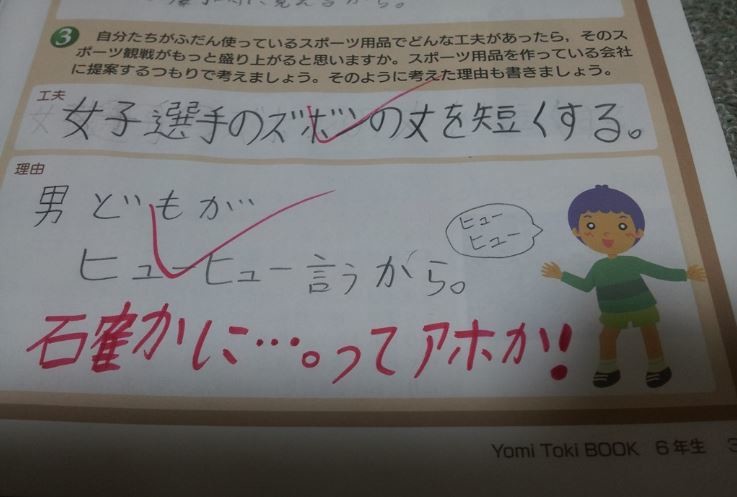 3 自分たちがふだん使っているスポーツ用品でどんな工夫があったら，そのス
ポーツ観戦がもっと盛り上がると思いますか。スポーツ用品を作っている会社
に提案するつもりで考えましょう。そのように考えた理由も書きましょう。
工夫
女子選手のズボンの丈を短くする。
理由
男どもが
ヒューヒュー言うから。
ヒュー
ヒュー
確かに…。ってアホか!
Yomi Toki BOOK 6年生 3